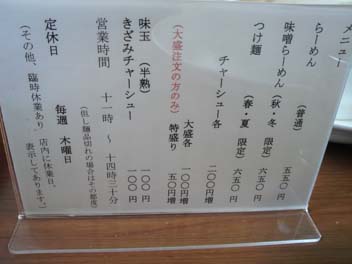 メニュー
らーめん (普通) 五五〇円
味噌らーめん (秋・冬 限定) 六五〇円
つけ麺 (春・夏 限定) 六五〇円
チャーシュー各 二〇〇円増
大盛各 一〇〇円増
(大盛注文の方のみ) 特盛り 五〇円増
味玉 (半熟) 一〇〇円
きざみチャーシュー 一〇〇円
営業時間 十一時 〜 十四時三十分
(但し麺品切れの場合はその都度)
定休日 毎週 木曜日
(その他、臨時休業あり。店内に休業日、表示してあります。)